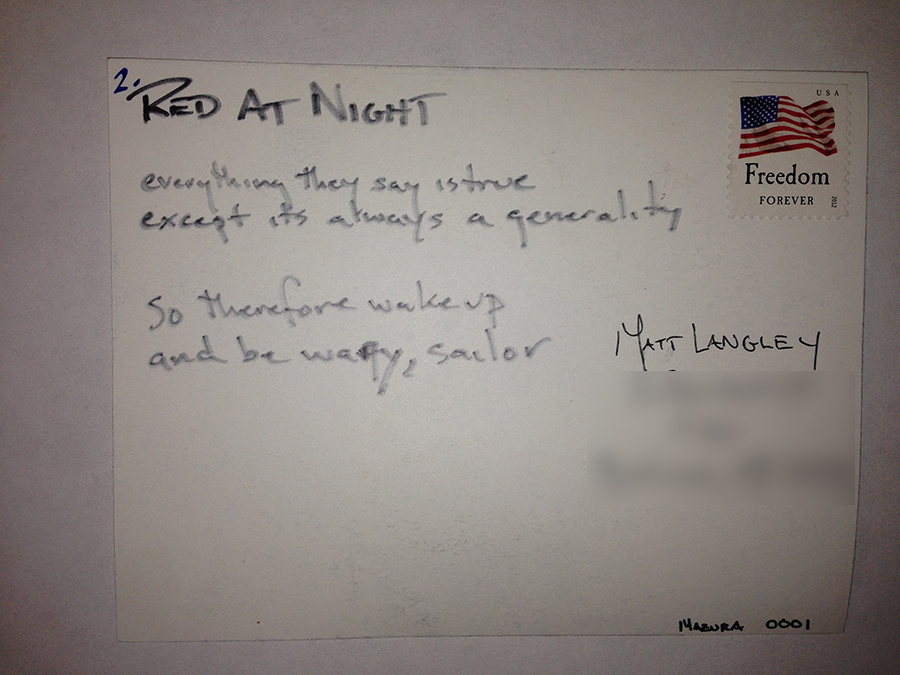 2.
RED AT NIGHT
everything they say is true
except its always a generality
So therefore wake up
and be wary, sailor
USA
Freedom
FOREVER
2012
MATT LANGLEY
MAZURA 0001